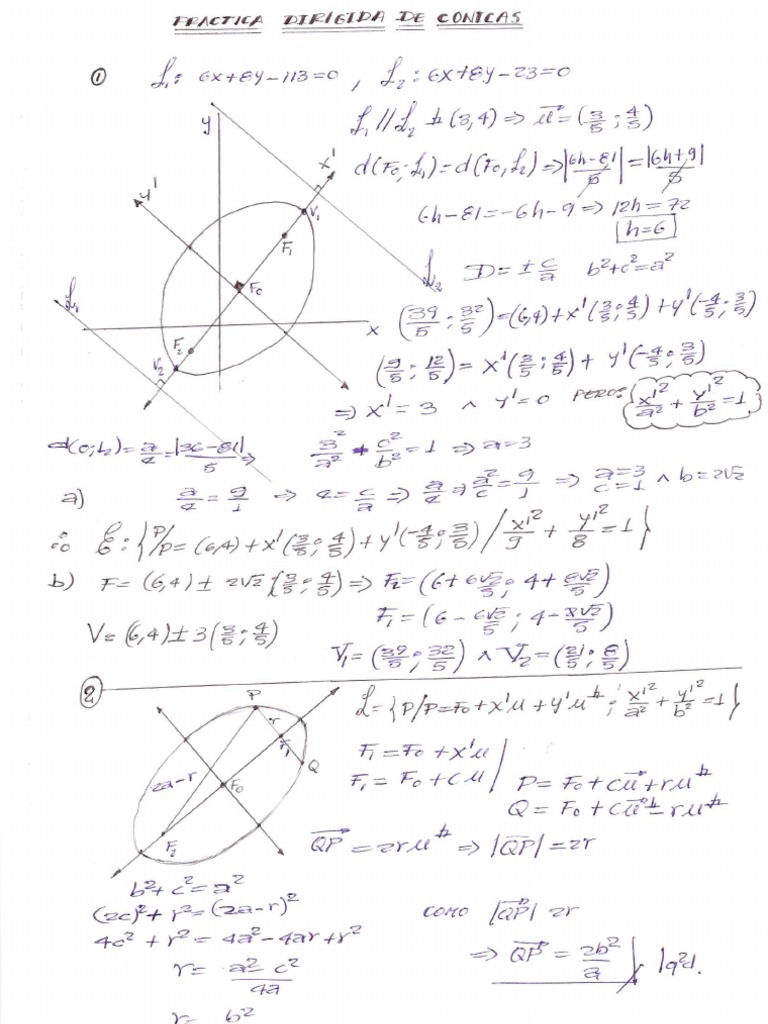 PRACTICA DIRIGIDA DE CONICAS
① L₁: 6x+8y-113=0 , L₂: 6x+8y-23=0
L₁ // L₂ ⊥ (3,4) ⇒ u⃗ = (3/5 ; 4/5)
d(F₀; L₁) = d(F₀, L₂) ⇒ |6h-81|/5 = |6h+9|/5
6h-81 = -6h-9 ⇒ 12h = 72
h=6
D = ± c/a b²+c²=a²
(39/5 ; 32/5) = (6,4) + x'(3/5 ; 4/5) + y'(-4/5 ; 3/5)
(9/5 ; 12/5) = x'(3/5 ; 4/5) + y'(-4/5 ; 3/5)
⇒ x' = 3 ∧ y' = 0 PERO: x'²/a² + y'²/b² = 1
y
x'
y'
V₁
F₁
F₀
L₂
L₁
x
F₂
V₂
d(0; L₂) = a/e = |36-81|/5 ⇒ 3²/a² + c²/b² = 1 ⇒ a=3
a) a/e = 9/1 ⇒ e = c/a ⇒ a/e ⇒ a²/c = 9/1 ⇒ a=3 c=1 ∧ b=2√2
∴ E: {P/P = (6,4) + x'(3/5 ; 4/5) + y'(-4/5 ; 3/5) / x'²/9 + y'²/8 = 1}
b) F = (6,4) ± 2√2 (3/5 ; 4/5) ⇒ F₂ = (6 + 6√2/5 ; 4 + 8√2/5)
F₁ = (6 - 6√2/5 ; 4 - 8√2/5)
V = (6,4) ± 3(3/5 ; 4/5)
V₁ = (39/5 ; 32/5) ∧ V₂ = (21/5 ; 8/5)
②
P
r
F₁
Q
F₀
2a-r
F₂
L = {P/P = F₀ + x'u + y'u^⊥ ; x'²/a² + y'²/b² = 1}
F₁ = F₀ + x'u
F₁ = F₀ + cu
P = F₀ + cu⃗ + ru^⊥
Q = F₀ + cu⃗ - ru^⊥
QP⃗ = 2ru^⊥ ⇒ |QP⃗| = 2r
b² + c² = a²
(2c)² + r² = (2a-r)²
4c² + r² = 4a² - 4ar + r²
r = a² c²/4a
r = b²
COMO |QP⃗| 2r
⇒ QP⃗ = 2b²/a lqqd.